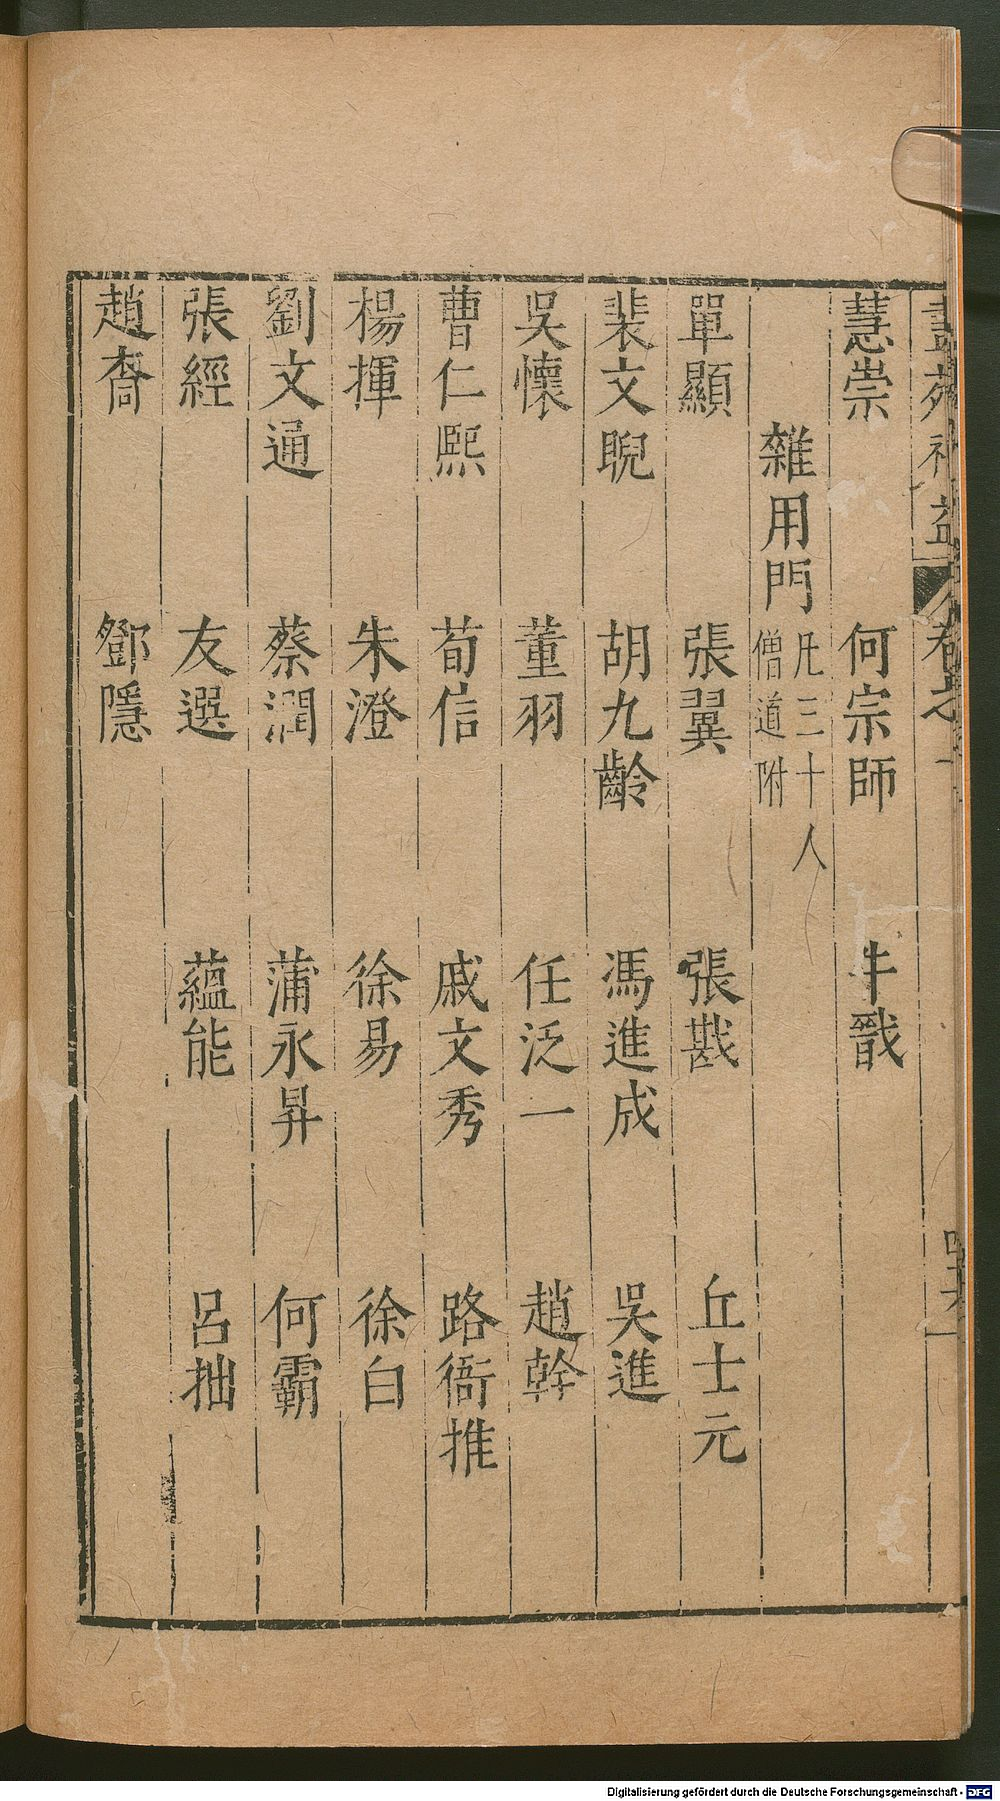 畫苑補益 卷之
慧崇 何宗師 牛戩
雜用門 凡三十人 僧道附
單顯 張翼 張戡 丘士元
裴文晛 胡九齡 馮進成 吳進
吳懷 董羽 任泛一 趙幹
曹仁熙 荀信 戚文秀 路衙推
楊揮 朱澄 徐易 徐白
劉文通 蔡潤 蒲永昇 何霸
張經 友選 蘊能 呂拙
趙裔 鄧隱
Digitalisierung gefördert durch die Deutsche Forschungsgemeinschaft - DFG